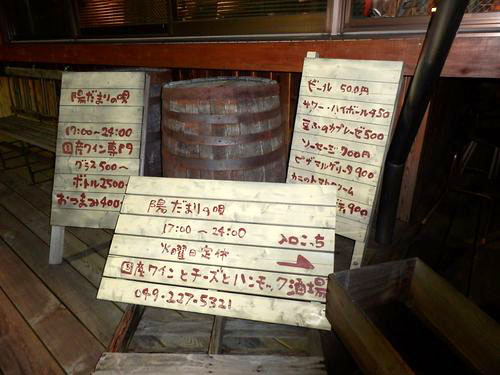 陽だまりの唄
17:00〜24:00
国産ワイン専門
グラス500〜
ボトル2500〜
おつまみ400〜
ビール 500円
サワー・ハイボール450
豆ふのカプレーゼ500
ソーセージ 700円
ピザマルゲリータ900
カニのトマトクリーム
900
陽だまりの唄
17:00〜24:00
火曜日定休
入口こっち
国産ワインとチーズとハンモック酒場
049-227-5321